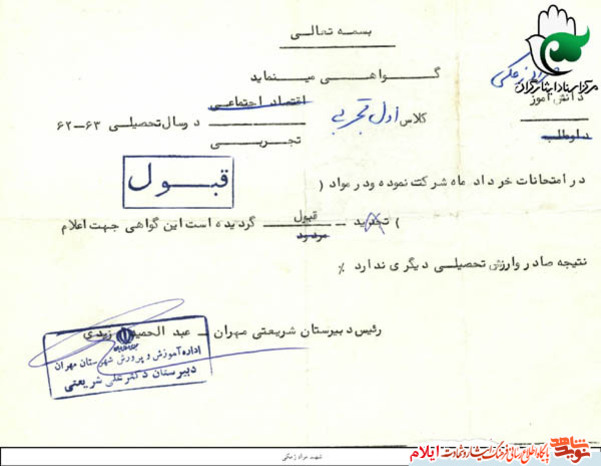 بسمه تعالی
مرکز اسناد ایثارگران
گواهی مینماید
دانش آموز
داوطلب
کلاس اول تجربی
اقتصاد اجتماعی
تجربی
در سال تحصیلی ۶۳-۶۲
در امتحانات خرداد ماه شرکت نموده و در مواد (
قبول
) تجدید - قبول
مردود
گردیده است این گواهی جهت اعلام
نتیجه صادر و ارزش تحصیلی دیگری ندارد ٪
رئیس دبیرستان شریعتی مهران - عبد الحمید زیدی
اداره آموزش و پرورش شهرستان مهران
دبیرستان دکتر علی شریعتی
شهید مراد زمکی
نوید شاهد پایگاه اطلاع رسانی فرهنگ ایثار و شهادت ایلام